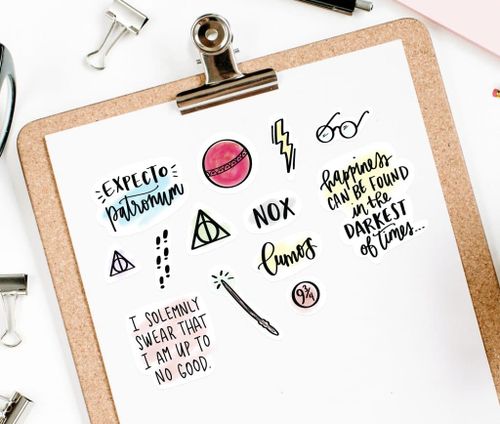 EXPECTO
patronum
happiness
CAN BE FOUND
in the
DARKEST
of times...
NOX
Lumos
9 3/4
I SOLEMNLY
SWEAR THAT
I AM UP TO
NO GOOD.